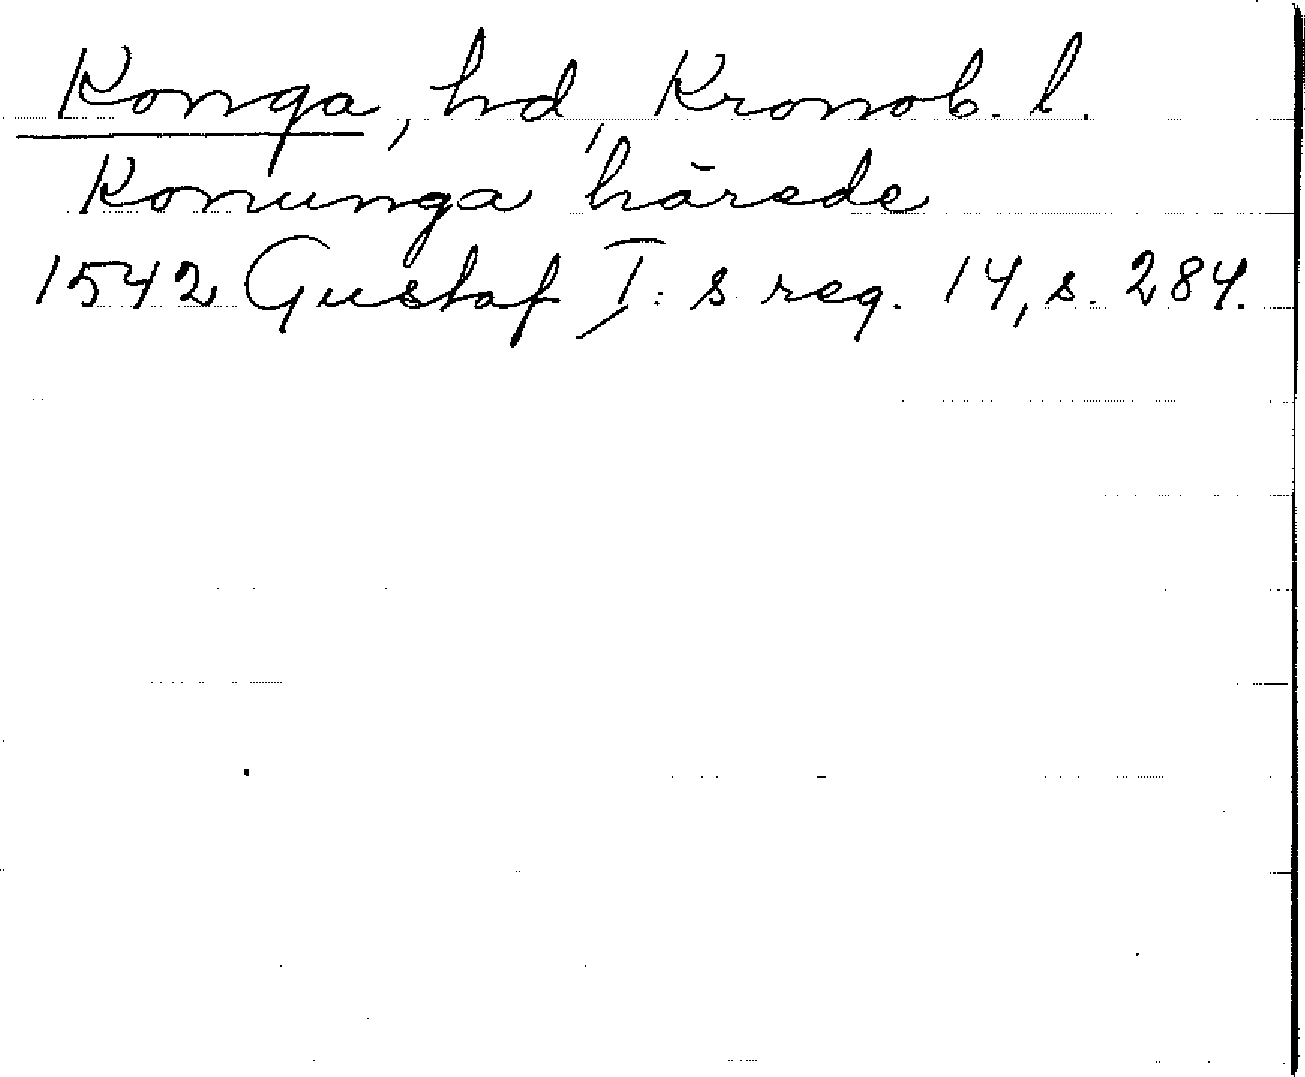 Konga, hd, Kronob. l.
Konunga härede
1542 Gustaf I:s reg. 14, s. 284.